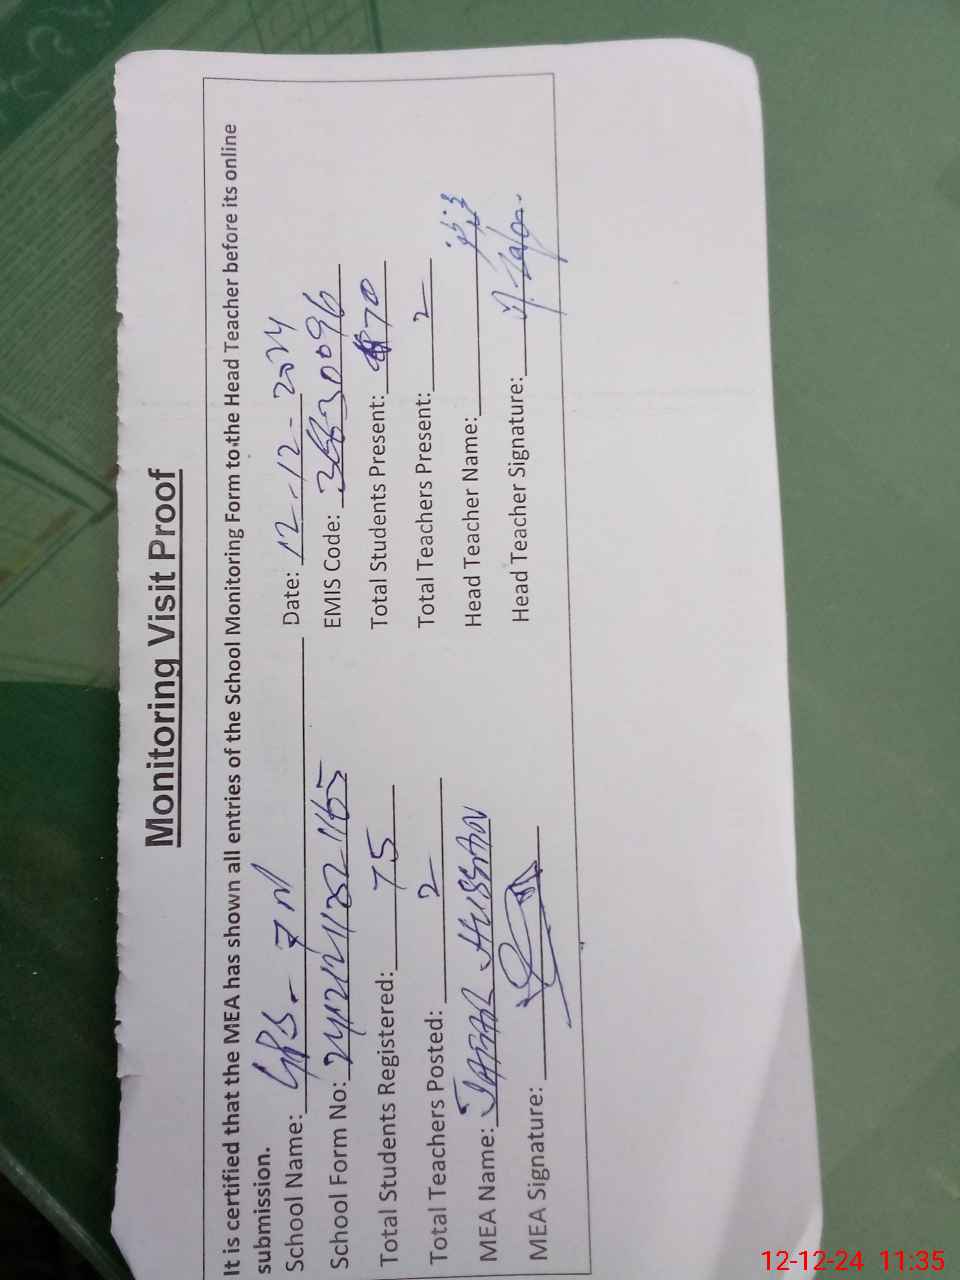 Monitoring Visit Proof
It is certified that the MEA has shown all entries of the School Monitoring Form to the Head Teacher before its online
submission.
School Name: GPS - 7 Date: 12-12-2024
School Form No: EMIS Code: 36630096
Total Students Registered: 75 Total Students Present: 70
Total Teachers Posted: 2 Total Teachers Present: 2
MEA Name: HUSSAIN Head Teacher Name:
MEA Signature: Head Teacher Signature:
12-12-24 11:35